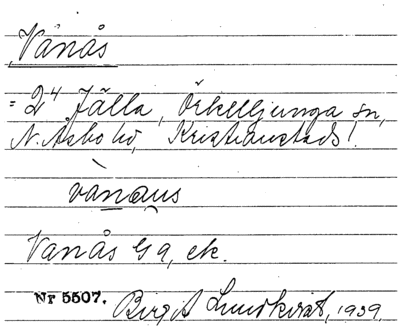 Vånås
= 2⁴ Fälla, Örkelljunga sn,
N. Åsbo hd, Kristianstads l.
vànaus
Vanås Ga, ek.
Nr 5507. Birgit Lundkvist, 1939.